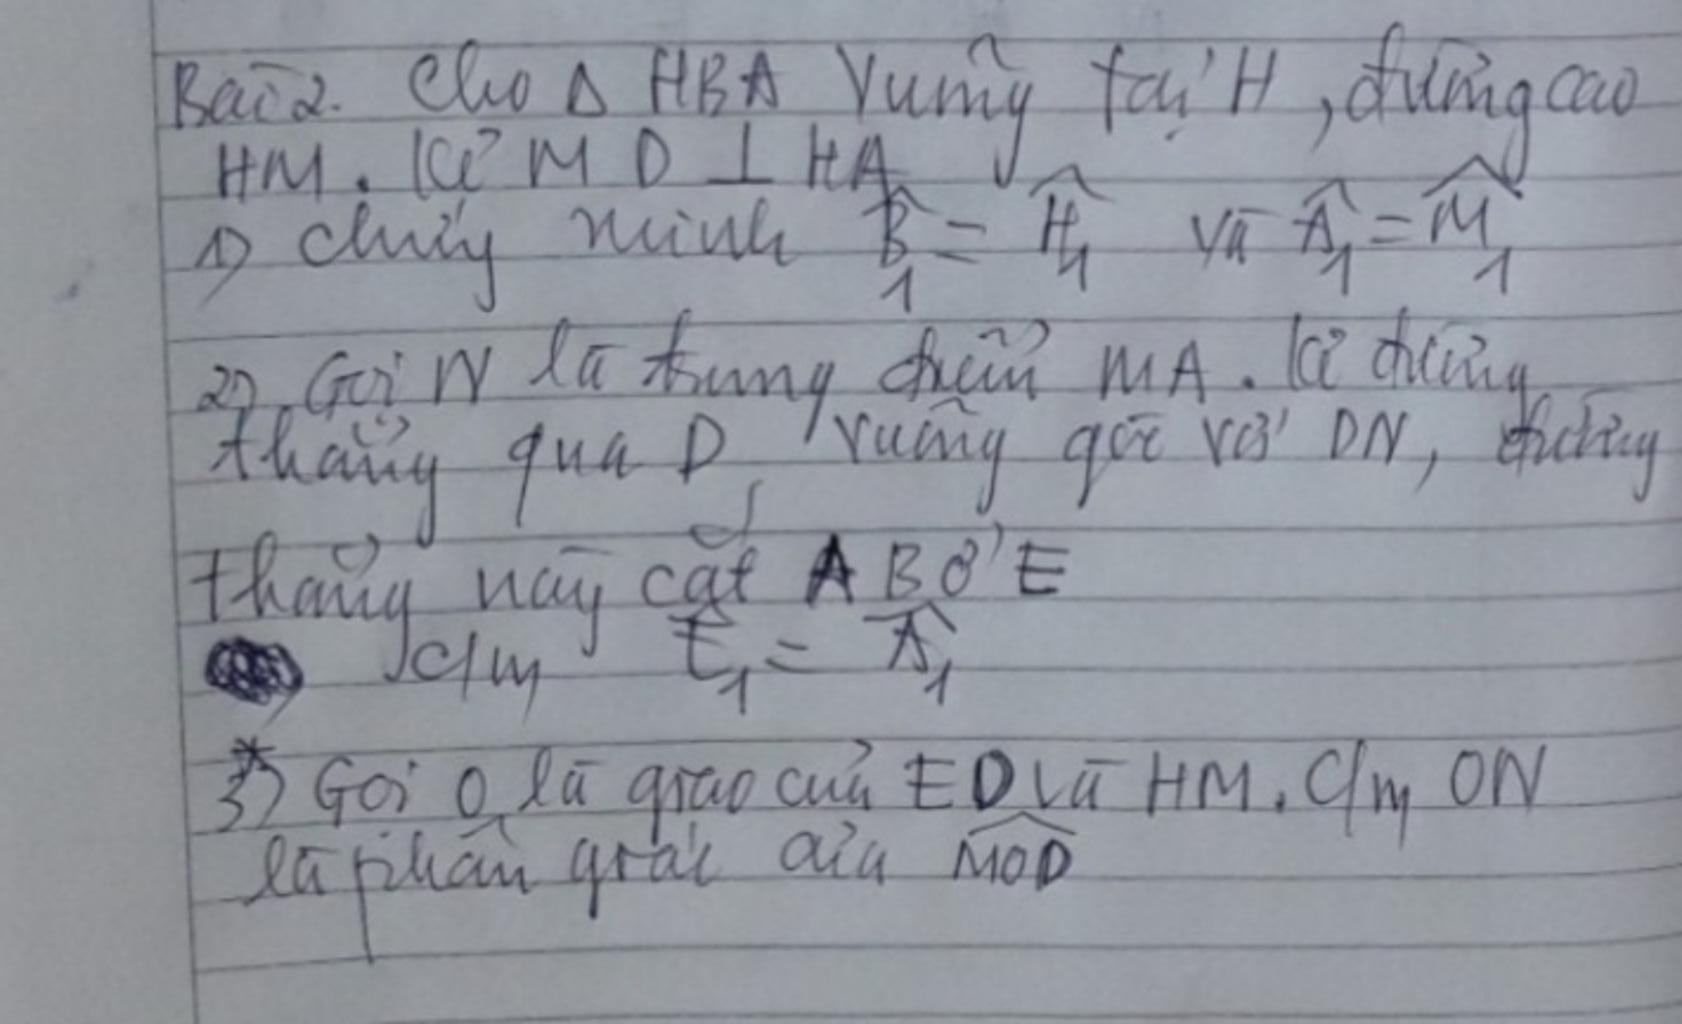 Bài 2. Cho Δ HBA vuông tại H, đường cao
HM. Kẻ MD ⊥ HA
1) Chứng minh B̂₁ = Ĥ₁ và Â₁ = M̂₁
2) Gọi N là trung điểm MA. Kẻ đường
thẳng qua D vuông góc với DN, đường
thẳng này cắt AB ở E
c/m Ê₁ = Â₁
3*) Gọi O là giao của ED và HM. C/m ON
là phân giác của MOD